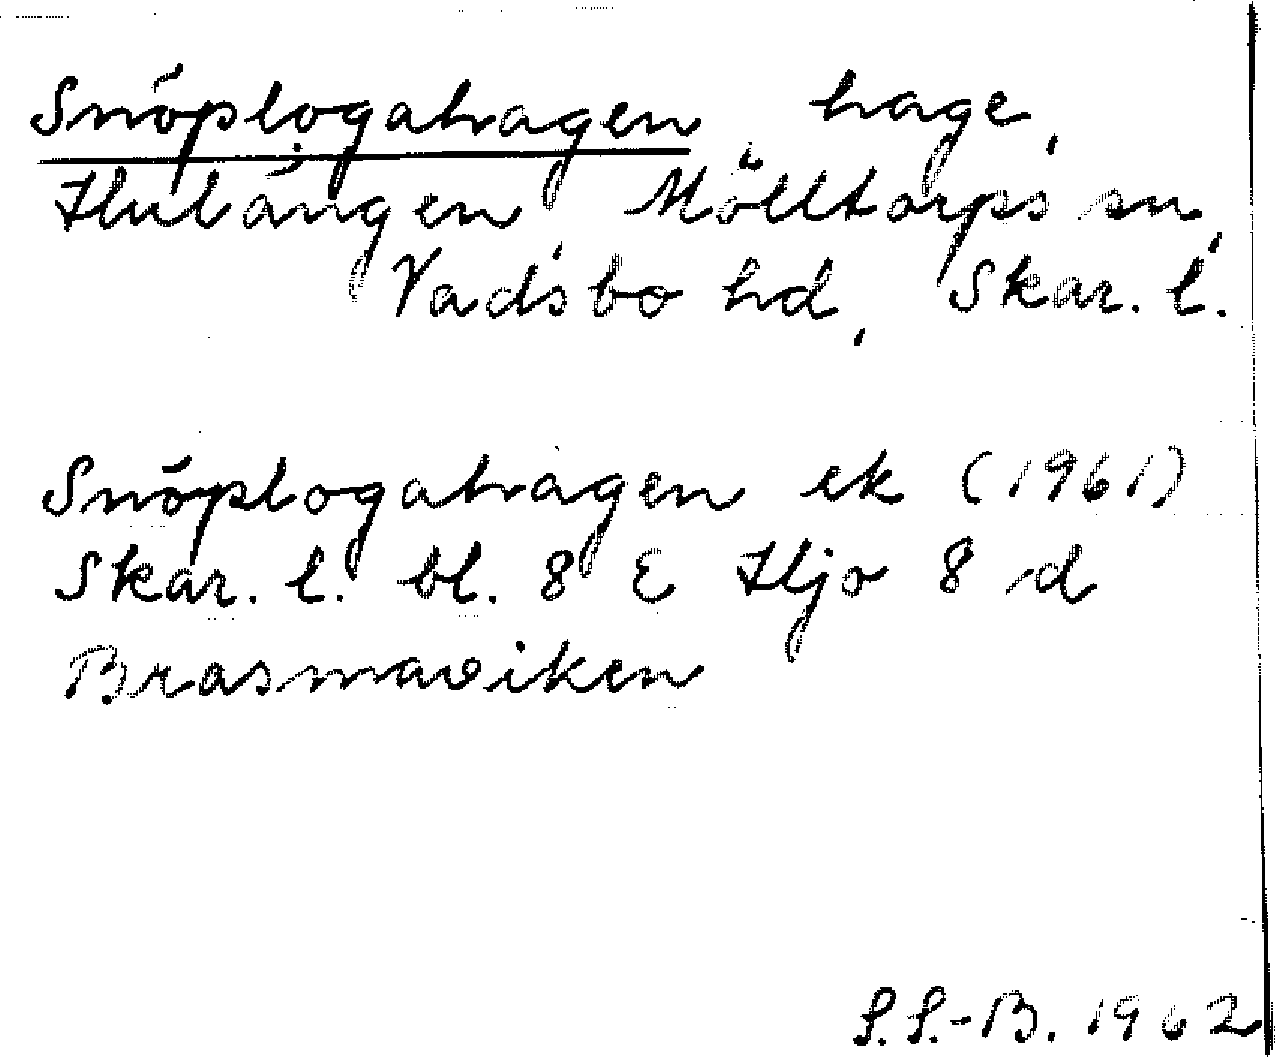 Snöplogahagen, hage,
Hulängen, Mölltorps sn,
Vadsbo hd, Skar. l.
Snöplogahagen ek (1961)
Skar. l. bl. 8 E Hjo 8 d
Brasmaviken
S.S.-B. 1962